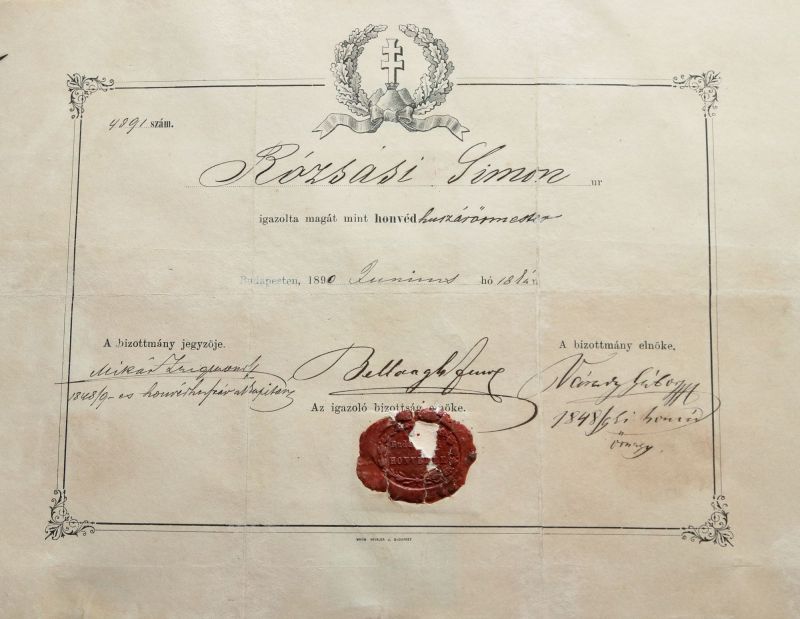 4891 szám.
Rózsási Simon ur
igazolta magát mint honvéd huszárőrmester
Budapesten, 1890 Junius hó 18kán
A bizottmány jegyzője.
A bizottmány elnöke.
Mikár Zsigmond
1848/9-es honvédhuszár alkapitány
Bellaagh
Várady Gábor
1848/9ki honvéd
őrnagy.
Az igazoló bizottság elnöke.
HONVÉD